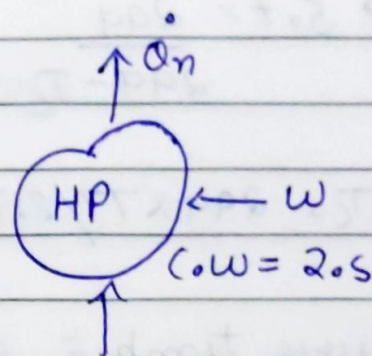 Q̇n
HP
W
C.W = 2.5